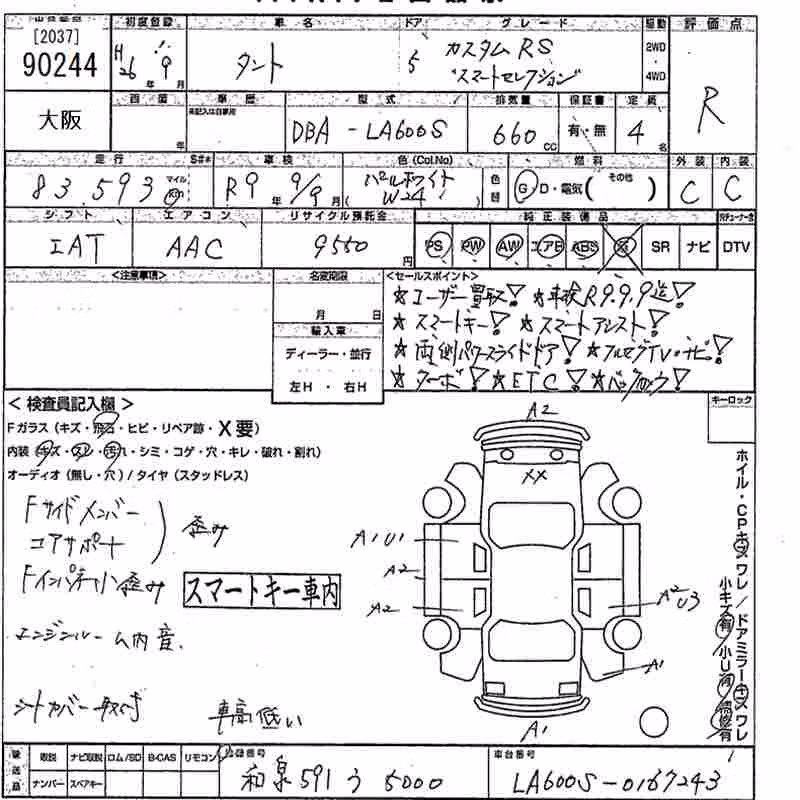 初度登録 車名 ドア グレード 駆動 評価点
[2037]
90244
H26年 9月
タント
5
カスタム RS
"スマートセレクション"
2WD
4WD
R
大阪
車歴 型式 排気量 保証書 定員
未記入は自家用
年
DBA - LA600S
660cc
有・無
4名
走行 S#* 車検 色(Col.No) 燃料 外装 内装
83,593 マイル Km
R9年 9/9月
(パールホワイト W24)
色替
G・D・電気( その他 )
C C
シフト エアコン リサイクル預託金 純正装備品
IAT AAC 9550円
PS PW AW エアB ABS SR ナビ DTV
<注意事項> 名変期限 <セールスポイント>
月 日
輸入車
ディーラー・並行
左H・右H
☆ユーザー買取! ☆車検R9.9.9迄!
☆スマートキー! ☆スマートアシスト!
☆両側パワースライドドア! ☆フルセグTV・ナビ!
☆ターボ! ☆ETC! ☆バックカメラ!
<検査員記入欄>
キーロック
Fガラス(キズ・飛石・ヒビ・リペア跡・X要)
内装(キズ・スレ・汚れ・シミ・コゲ・穴・キレ・破れ・割れ)
オーディオ(無し・穴)/タイヤ(スタッドレス)
Fサイドメンバー
コアサポート
歪み
Fインパネ小歪み
スマートキー車内
エンジンルーム内音.
シートカバー取付
車高低い
A2
XX
A1U1
A2
A2
A2U3
A1
A1
ホイル・CPキズワレ/ドアミラーキズワレ
小キズ有 小U有 補修有
後送品
取説 ナビ取説 ロム/SD B-CAS リモコン
ナンバー スペアキー
登録番号
和泉 591 う 5000
車台番号
LA600S-0167243